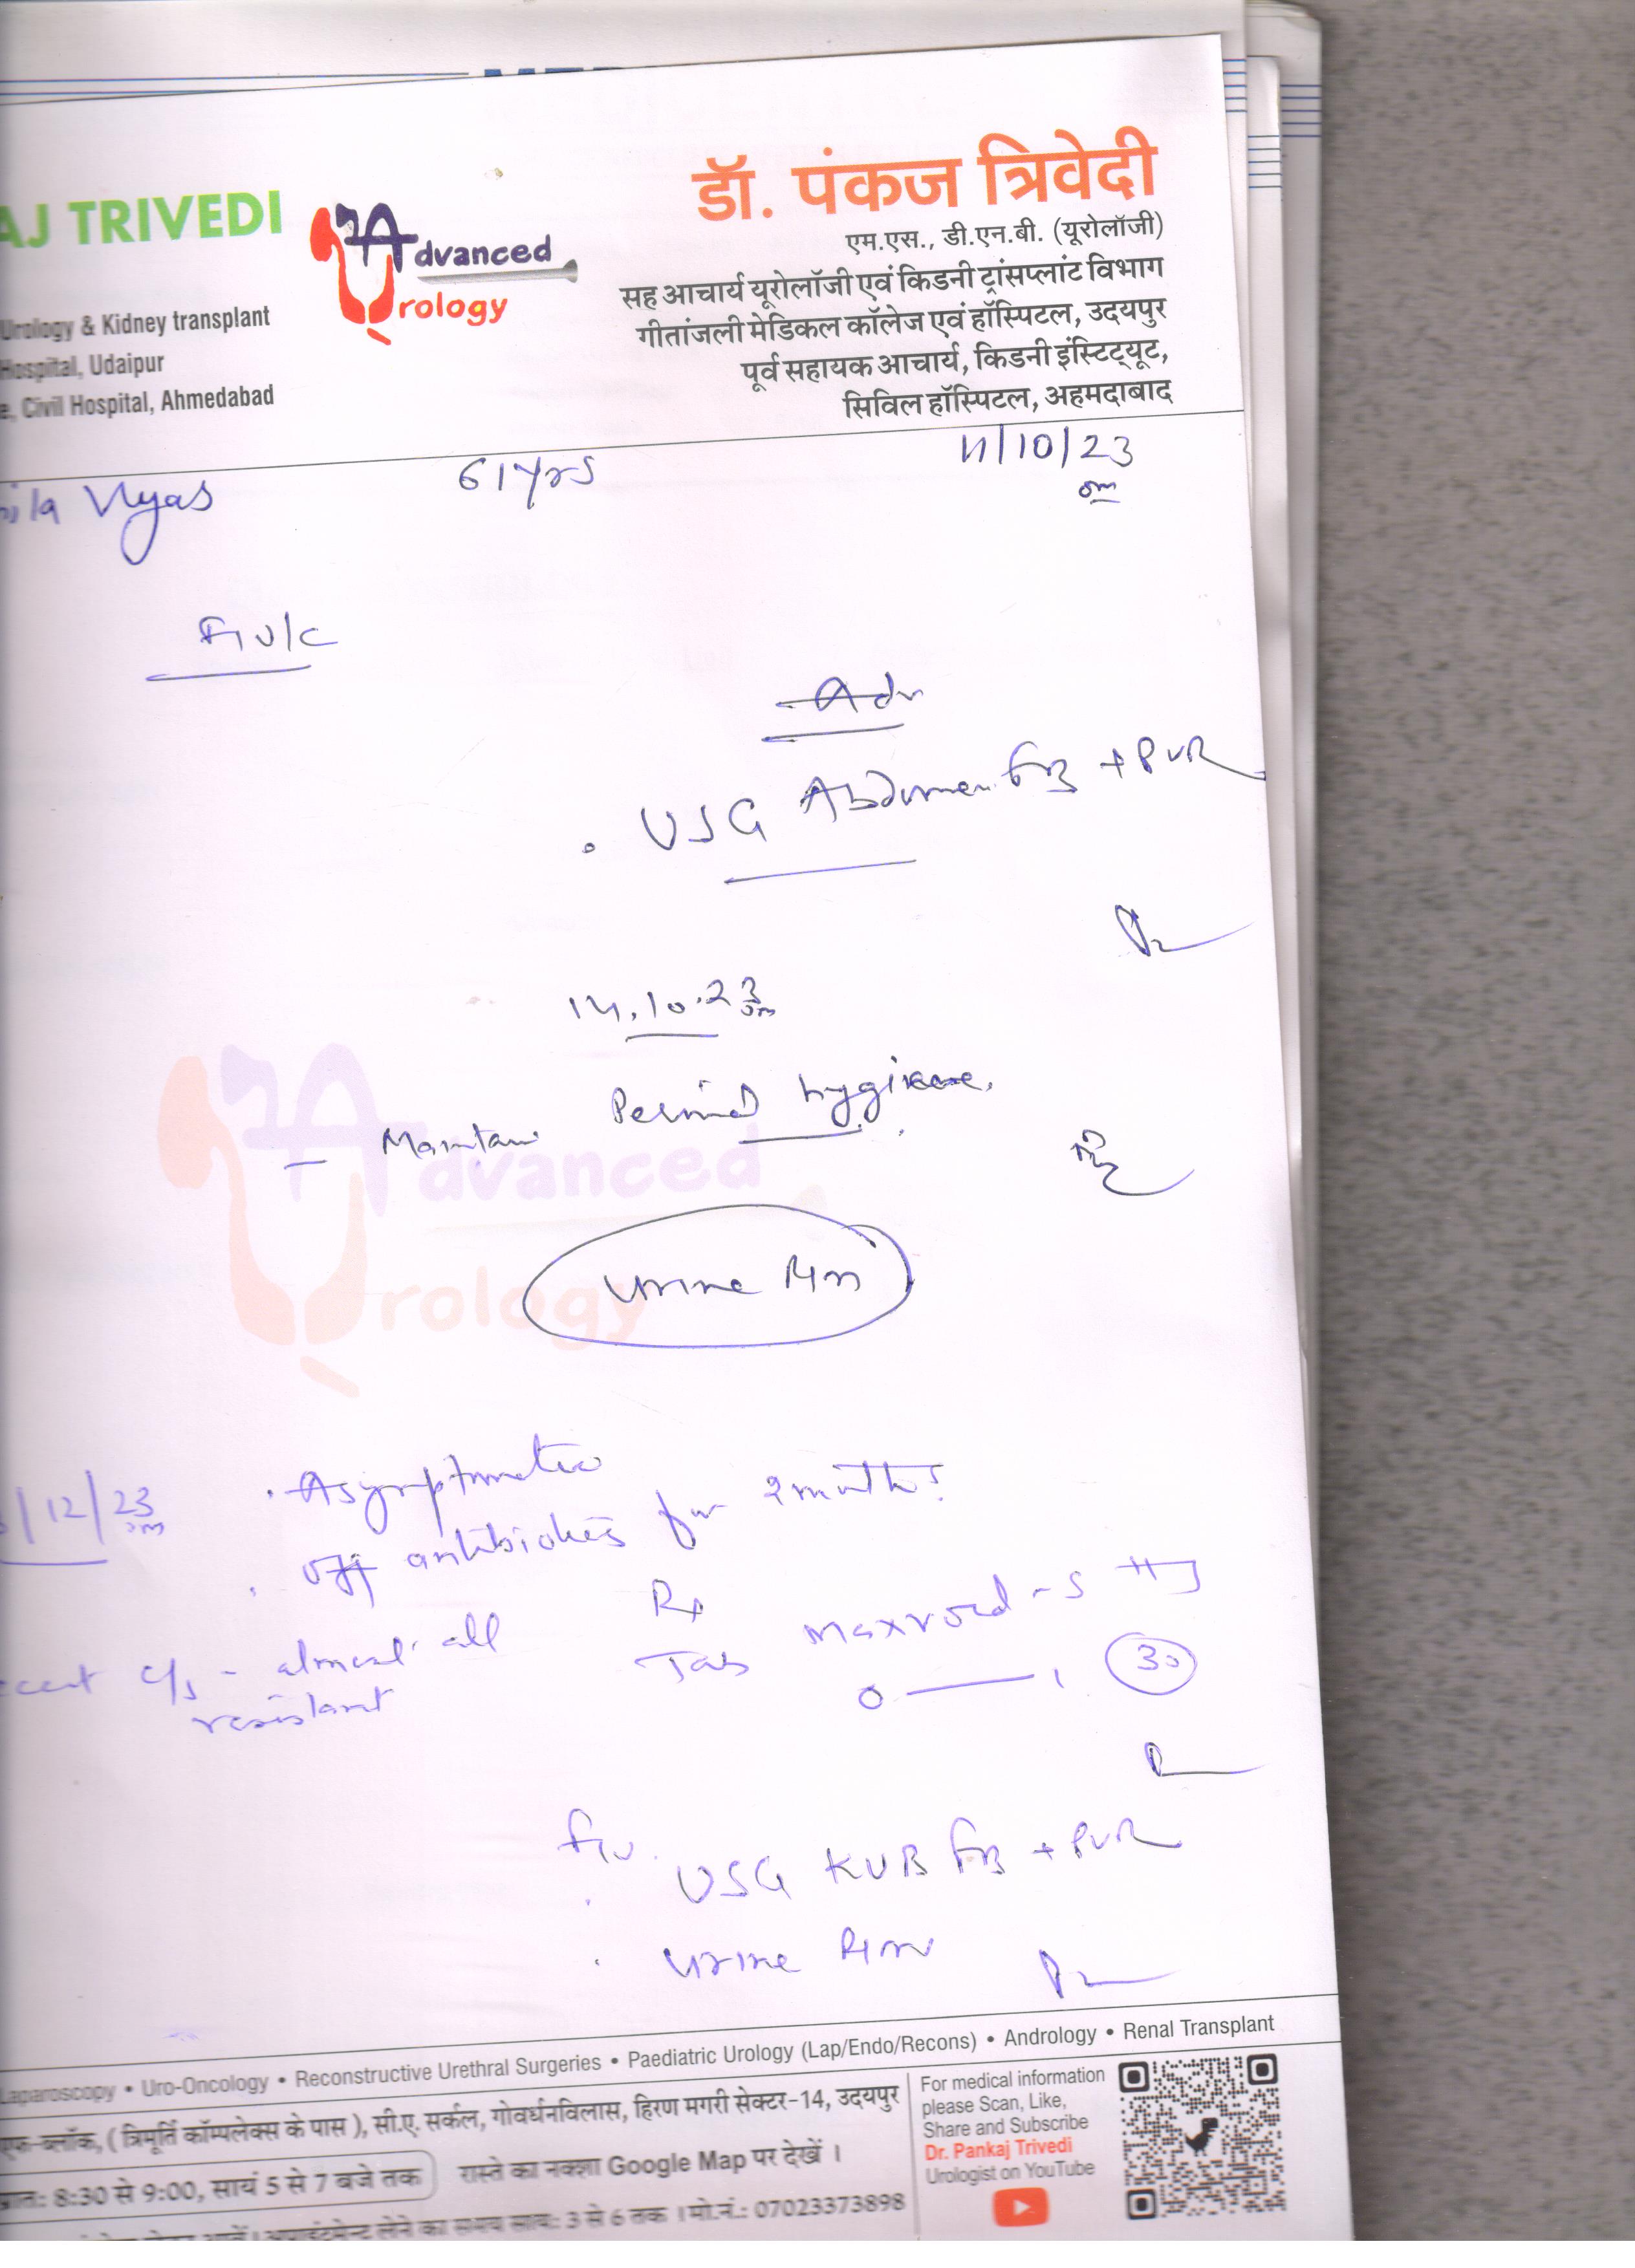 AJ TRIVEDI
Urology & Kidney transplant
Hospital, Udaipur
e, Civil Hospital, Ahmedabad
Advanced
Urology
डॉ. पंकज त्रिवेदी
एम.एस., डी.एन.बी. (यूरोलॉजी)
सह आचार्य यूरोलॉजी एवं किडनी ट्रांसप्लांट विभाग
गीतांजली मेडिकल कॉलेज एवं हॉस्पिटल, उदयपुर
पूर्व सहायक आचार्य, किडनी इंस्टिट्यूट,
सिविल हॉस्पिटल, अहमदाबाद
Vyas 61yrs 11/10/23
F/U/C
Adv
. USG Abdomen FB + PVR
14.10.23
- Maintain Perineal hygiene.
Advanced
Urology
Urine R/M
/12/23
. Asymptomatic
. off antibiotics for 2 months
C/S - almost all
resistant
Rx
Tab Maxvoid-S
0 — 1 30
F/U.
. USG KUB FB + PVR
. Urine R/M
Laparoscopy • Uro-Oncology • Reconstructive Urethral Surgeries • Paediatric Urology (Lap/Endo/Recons) • Andrology • Renal Transplant
एफ-ब्लॉक, ( त्रिमूर्ति कॉम्पलेक्स के पास ), सी.ए. सर्कल, गोवर्धनविलास, हिरण मगरी सेक्टर-14, उदयपुर
प्रातः 8:30 से 9:00, सायं 5 से 7 बजे तक
रास्ते का नक्शा Google Map पर देखें ।
अपाइंटमेन्ट लेने का समय सायः 3 से 6 तक । मो.नं.: 07023373898
For medical information
please Scan, Like,
Share and Subscribe
Dr. Pankaj Trivedi
Urologist on YouTube